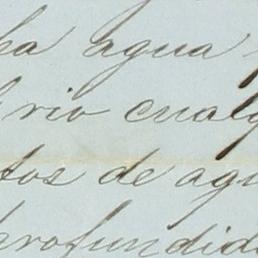 ba agua
rio cualq
tos de agu
profundid